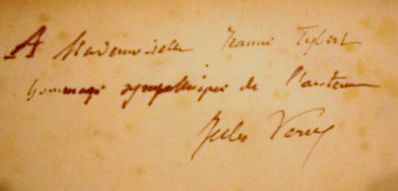 A Mademoiselle Jeanne
hommage sympathique de l'auteur
Jules Verne